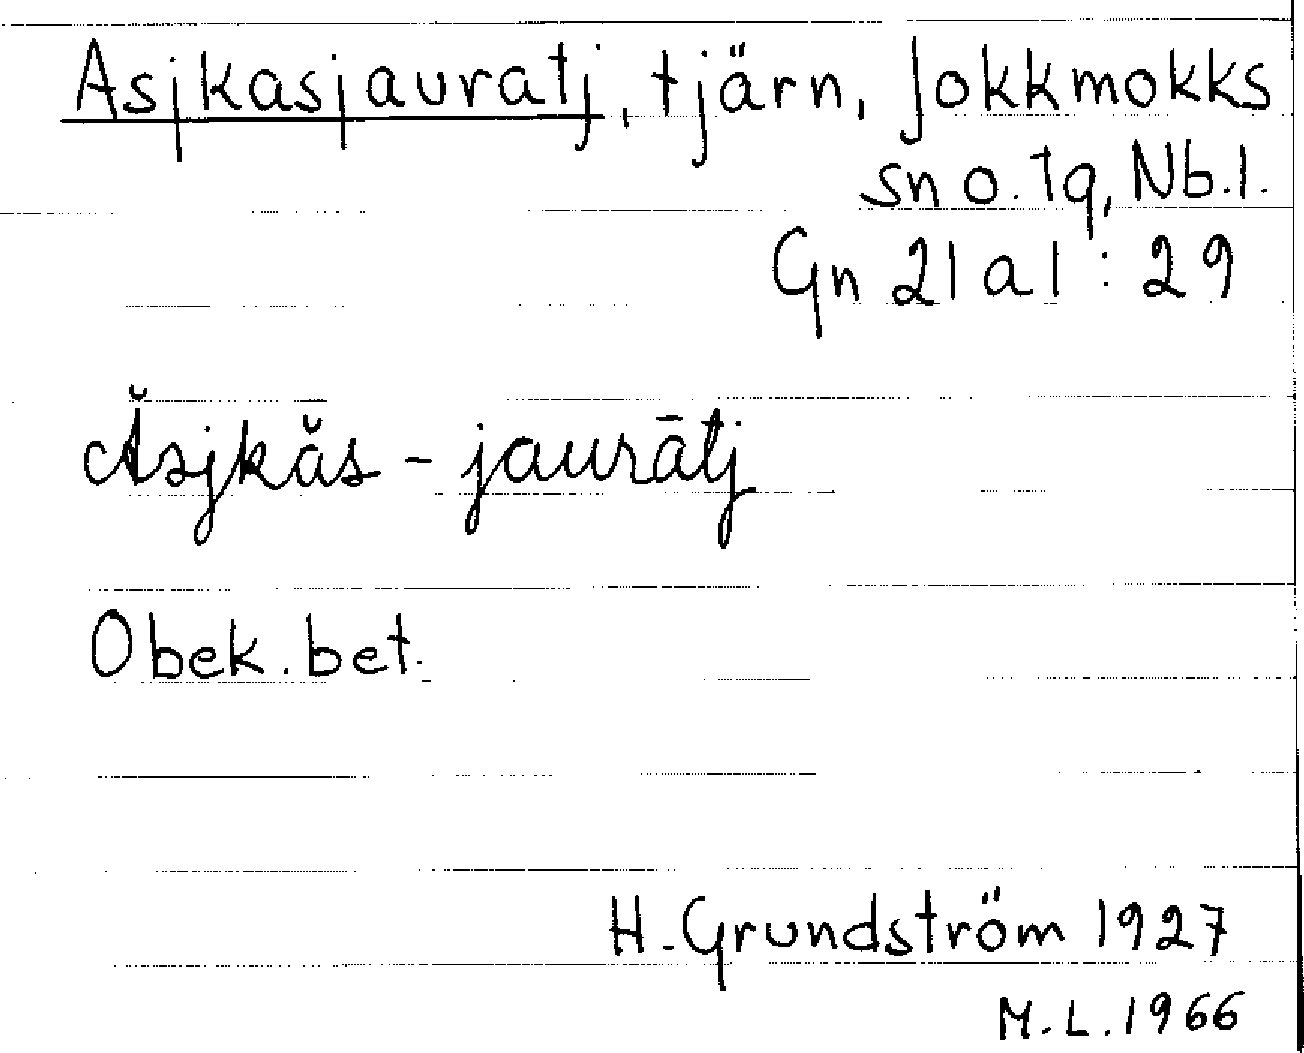 Asjkasjauratj, tjärn, Jokkmokks
sn o. tg, Nb.l.
Gn 21 a 1 : 29
Ăsjkăs - jaurātj
Obek. bet.
H. Grundström 1927
M.L. 1966